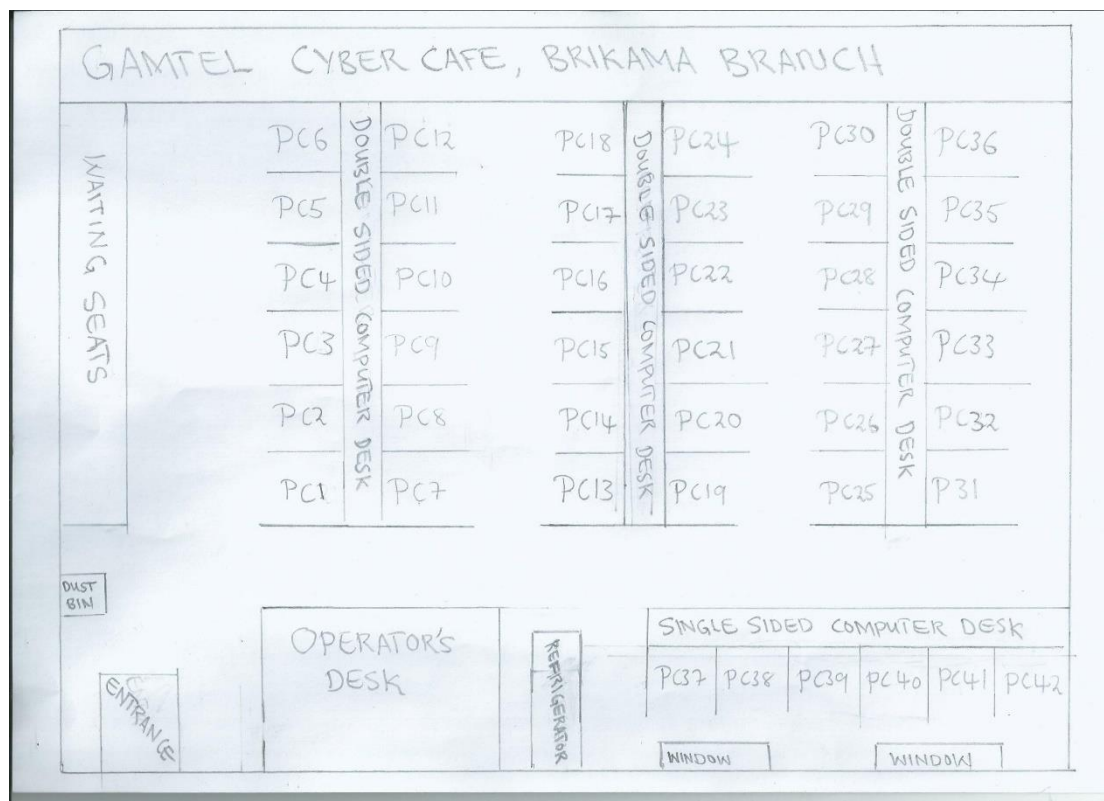 GAMTEL CYBER CAFE, BRIKAMA BRANCH
WAITING SEATS
PC6
PC5
PC4
PC3
PC2
PC1
DOUBLE SIDED COMPUTER DESK
PC12
PC11
PC10
PC9
PC8
PC7
PC18
PC17
PC16
PC15
PC14
PC13
DOUBLE SIDED COMPUTER DESK
PC24
PC23
PC22
PC21
PC20
PC19
PC30
PC29
PC28
PC27
PC26
PC25
DOUBLE SIDED COMPUTER DESK
PC36
PC35
PC34
PC33
PC32
P31
DUST
BIN
ENTRANCE
OPERATOR'S
DESK
REFRIGERATOR
SINGLE SIDED COMPUTER DESK
PC37 PC38 PC39 PC40 PC41 PC42
WINDOW
WINDOW